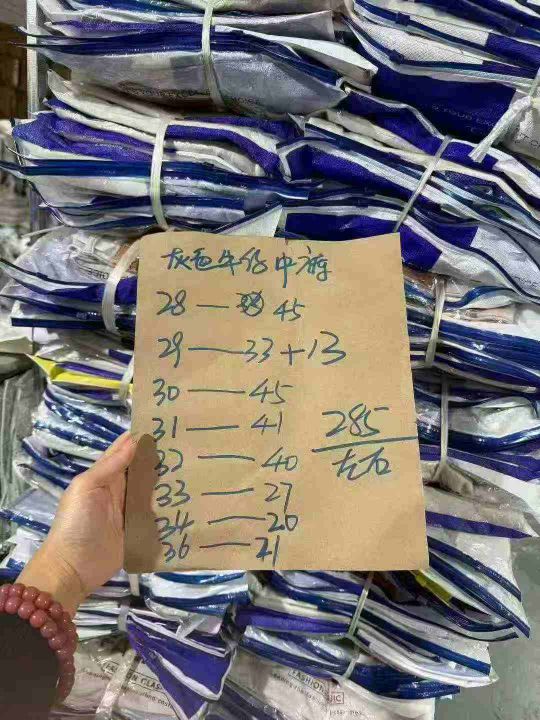 灰色牛仔中裤
28 — 45
29 — 33+13
30 — 45
31 — 41
32 — 40
33 — 27
34 — 20
36 — 21
285
左右